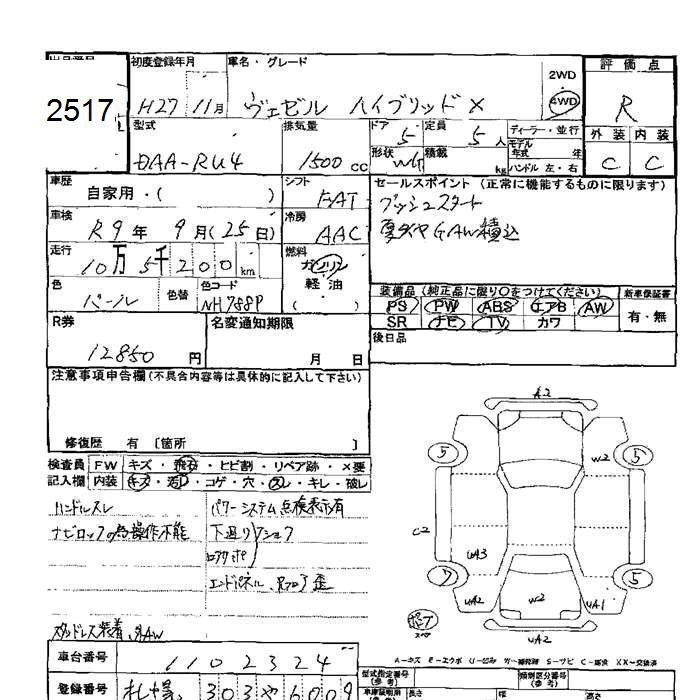 出品番号 初度登録年月 車名・グレード 評価点
2517 H27 11月 ヴェゼル ハイブリッドX 2WD 4WD R
型式 排気量 ドア 定員 ディーラー・並行 外装 内装
DAA-RU4 1500cc 5 5人 モデル年式 年 C C
形状 積載 kg ハンドル 左・右
車歴 シフト セールスポイント (正常に機能するものに限ります)
自家用・( ) FAT プッシュスタート
車検 冷房 夏タイヤGAW積込
R9年 9月(25日) AAC
走行 燃料
10万5千200km ガソリン
軽油
色 色替 色コード ( )
パール NH788P
装備品 (純正品に限り○をつけてください) 新車保証書
PS PW ABS エアB AW 有・無
SR ナビ TV カワ
R券 名変通知期限 後日品
12850円 月 日
注意事項申告欄(不具合内容等は具体的に記入して下さい)
修復歴 有 〔箇所 〕
検査員 FW キズ・飛石・ヒビ割・リペア跡・×要
記入欄 内装 キズ・汚レ・コゲ・穴・スレ・キレ・破レ
ハンドルスレ パワーシステム点検表示有
ナビロックの為操作不能 下廻り
エンドパネル
スタッドレス装着
A2
5 5
W2
C2
UA3
7 5
UA2 W2 UA1
UA2
A-キズ E-エクボ U-凹み W-補修跡 S-サビ C-腐食 XX-交換済
車台番号 1102324
登録番号 札幌 303や6009
型式指定番号(参考) 類別区分番号(参考)
長さ 幅 高さ